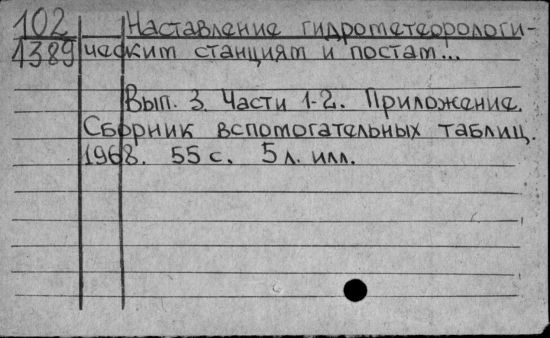 102 Наставление гидрометеорологи-
1389 ческим станциям и постам...
Вып. 3. Части 1-2. Приложение.
Сборник вспомогательных таблиц.
1968. 55 с. 5 л. илл.